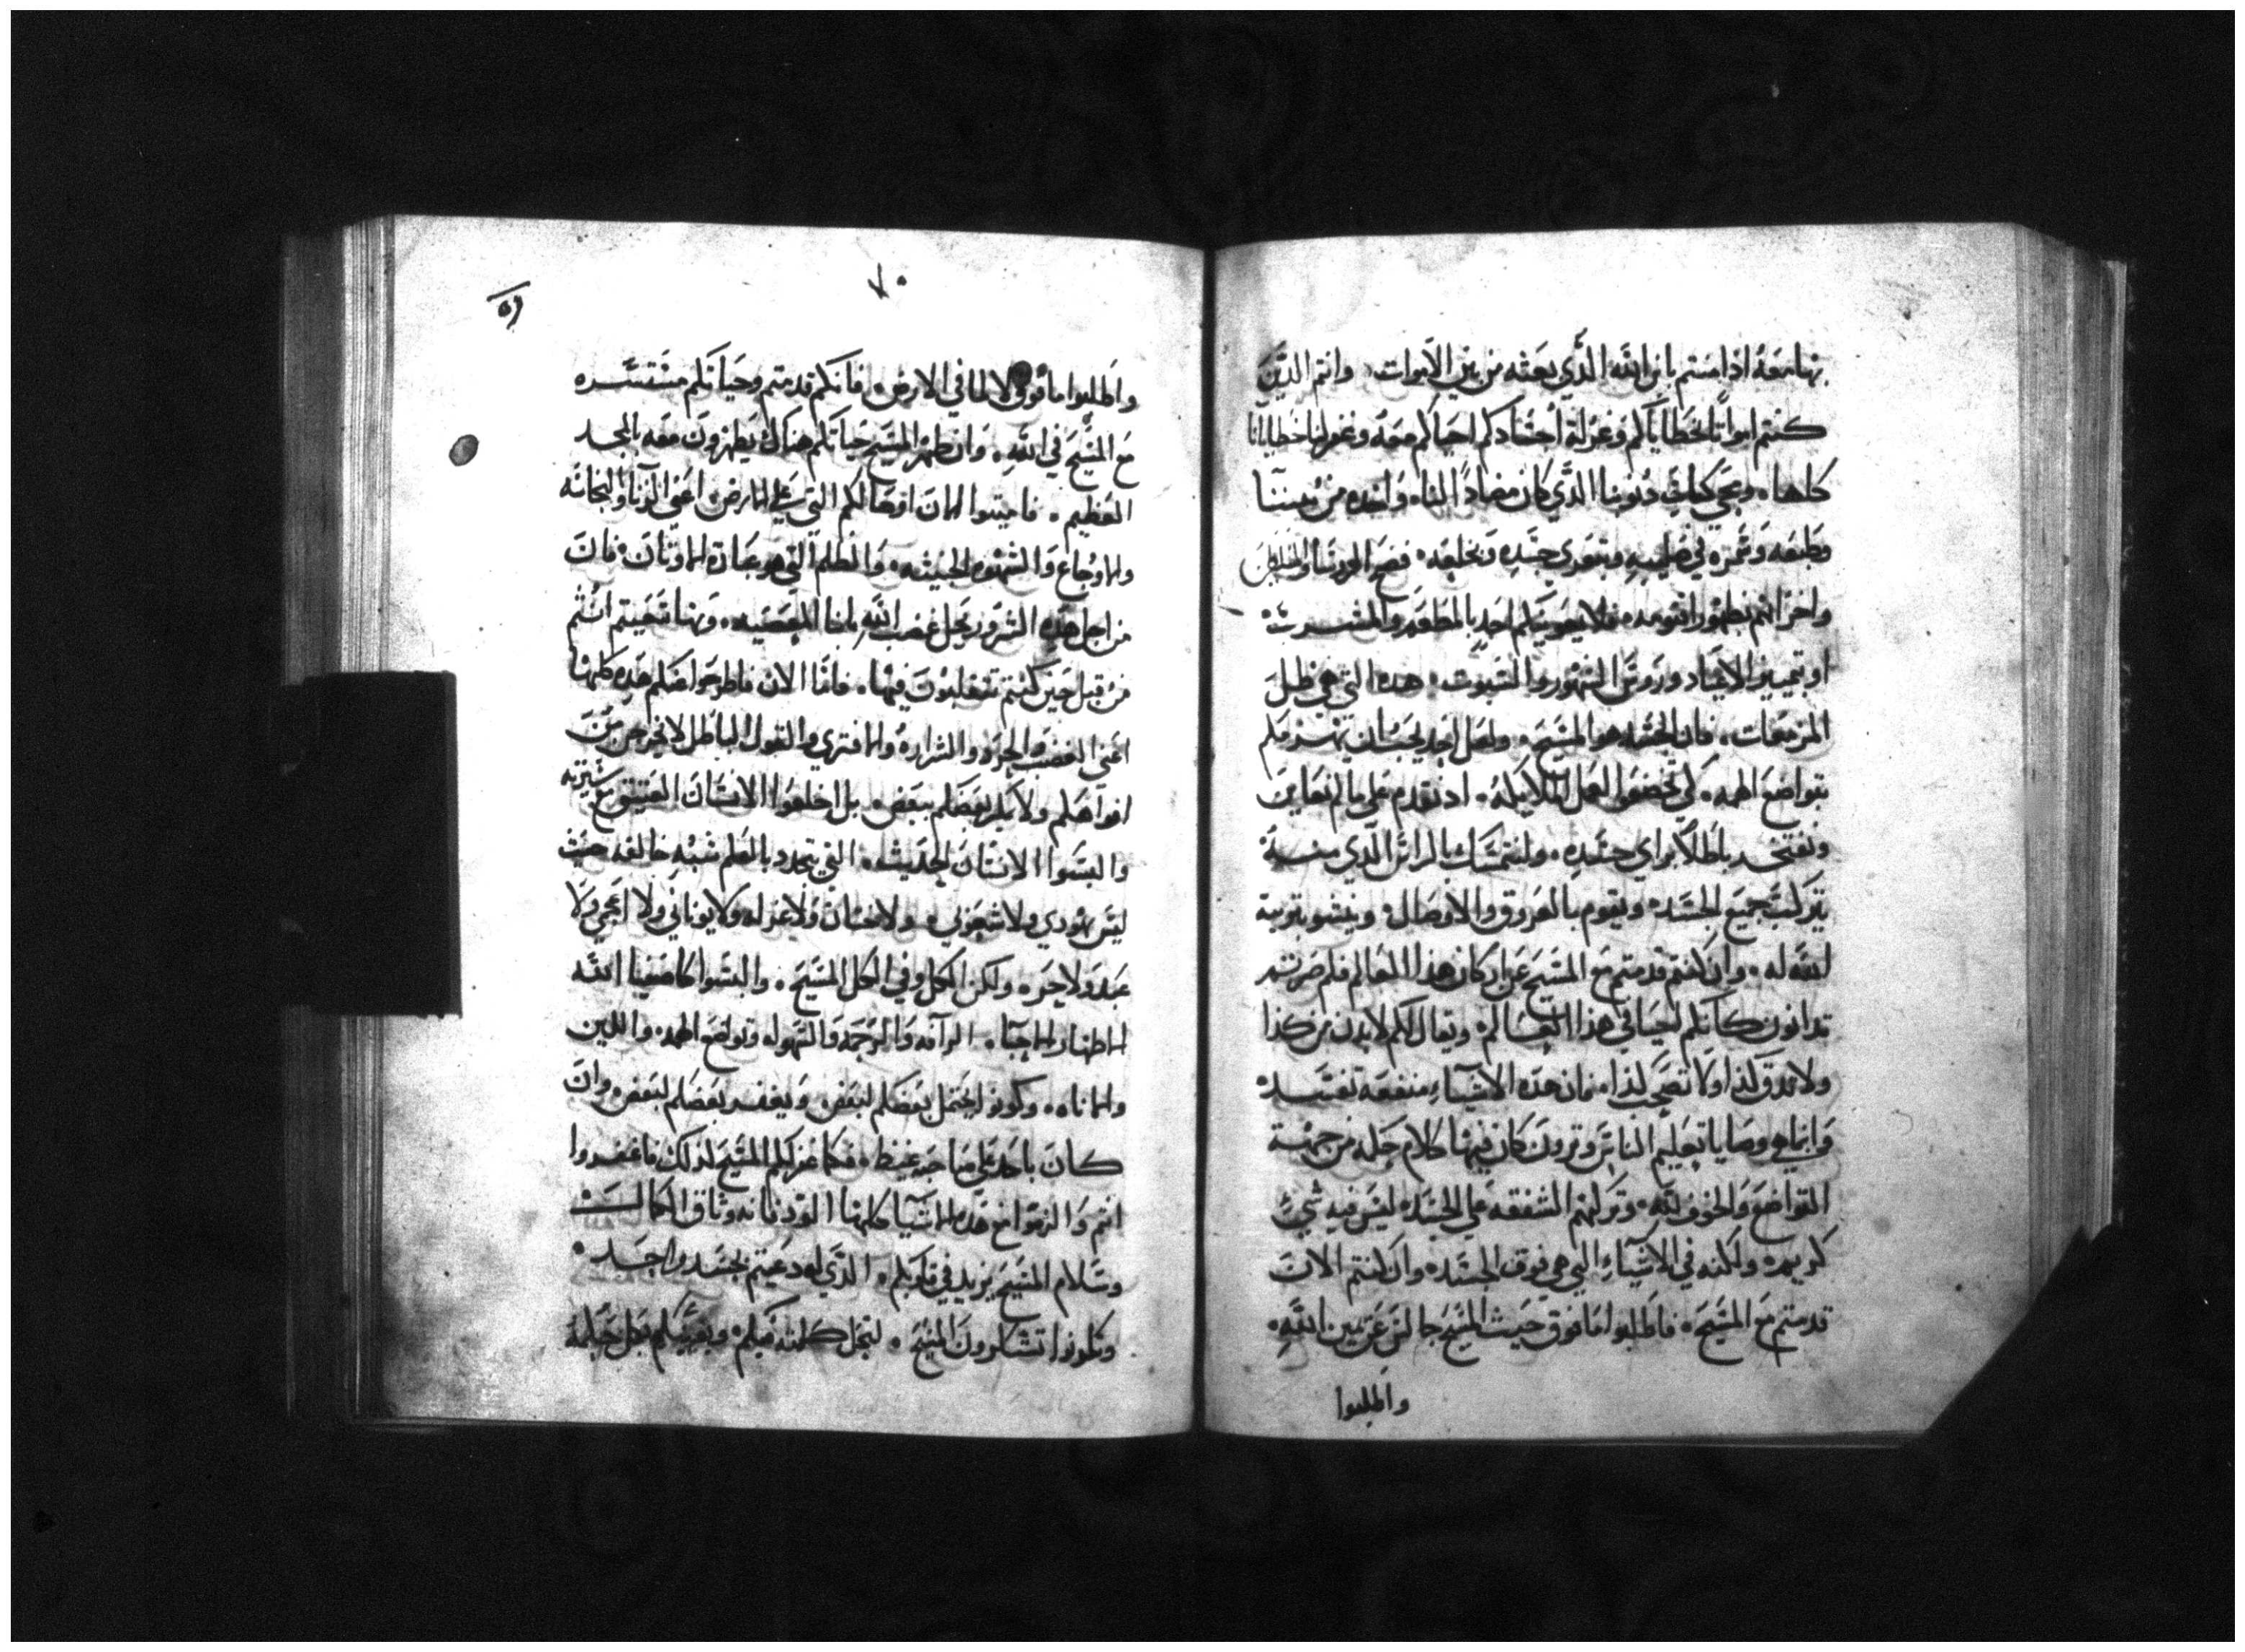 بها معه اذ امنتم بان الله الذي بعثه من بين الاموات وانتم الذين
كنتم امواتا بخطاياكم وغرلة اجسادكم احياكم معه وغفر لنا خطايانا
كلها ومحى كتاب ذنوبنا الذي كان مضادا لنا واخذه من بيننا
وطبعه وسمره في صليبه وبتعري جسده فضح الروسا
واخزاهم بظهور اقنومه فلا يعيبنكم احد بالمطعم والمشرب
او بتمييز الاعياد وروس الشهور والسبوت هذه التي هي ظل
المزمعات فان الجسد هو المسيح ولعل احد يحب ان
بتواضع الهمه كي تخضعوا لعمل الملايكه اذ تقدم على ما لم يعاين
ويفتخر باطلا براي جسده ولا يتمسك بالراس الذي منه
يتركب جميع الجسد ويقوم بالعروق والاوصال وينشو بتربية
الله له وان كنتم قد متم مع المسيح عن اركان هذا العالم فلم صرتم
تدانون كانكم احيا في هذا العالم ويقال لكم لا تدن من كذا
ولا تذق لذا ولا تصحب لذا فان هذه الاشياء منفعة تفسد
وانما هي وصايا تعليم الناس وترون كان فيها كلام حكمه من جهة
التواضع والخوف لله وتركهم الشفقه على الجسد ليس فيه شي
كريم ولكنه في الاشياء التي هي فوق الجسد وان كنتم الان
قد متم مع المسيح فاطلبوا ما فوق حيث المسيح جالس عن يمين الله
واطلبوا
٧٠
٥٩
واطلبوا ما فوق لا لما في الارض فانكم قد متم وحياتكم مستتره
مع المسيح في الله وان ظهر المسيح حياتكم هناك يظهرون معه بالمجد
العظيم فاميتوا الان اوصالكم التي على الارض اعني الزنا والنجاسه
والاوجاع والشهوه الخبيثه والظلم التي هو عبادة الاوثان فان
من اجل هذه الشرور يحل غضب الله بابنا المعصيه وبها سعيتم انتم
من قبل حين كنتم تتقلبون فيها فاما الان فاطرحوا عنكم هذه كلها
اعني الغضب والحرد والشراره والافترى والقول الباطل لا يخرجن من
افواهكم ولا بعضكم ببعض بل اخلعوا الانسان العتيق مع سيرته
والبسوا الانسان الحديث التي يتجدد بالعلم شبه خالقه حيث
ليس يهودي ولا شعوبي ولا ختان ولا غرله ولا يوناني ولا اعجمي ولا
عبد ولا حر ولكن الكل وفي الكل المسيح والبسوا كاصفيا الله
الاطهار الاحبا الرافه والرحمه والسهوله وتواضع الهمه واللين
والاناه وكونوا يحتمل بعضكم لبعض ويغفر بعضكم لبعض وان
كان باحد على صاحبه غيظ فكما غفر لكم المسيح لذلك فاغفروا
انتم والزموا مع هذه الاشيا كلها الود فانه وثاق الكمال
وسلام المسيح يزيد في قلوبكم الذي له دعيتم بجسد واحد
وتكونوا تشكرون المسيح لتحل كلمته فيكم وبغنيكم بكل حكمة